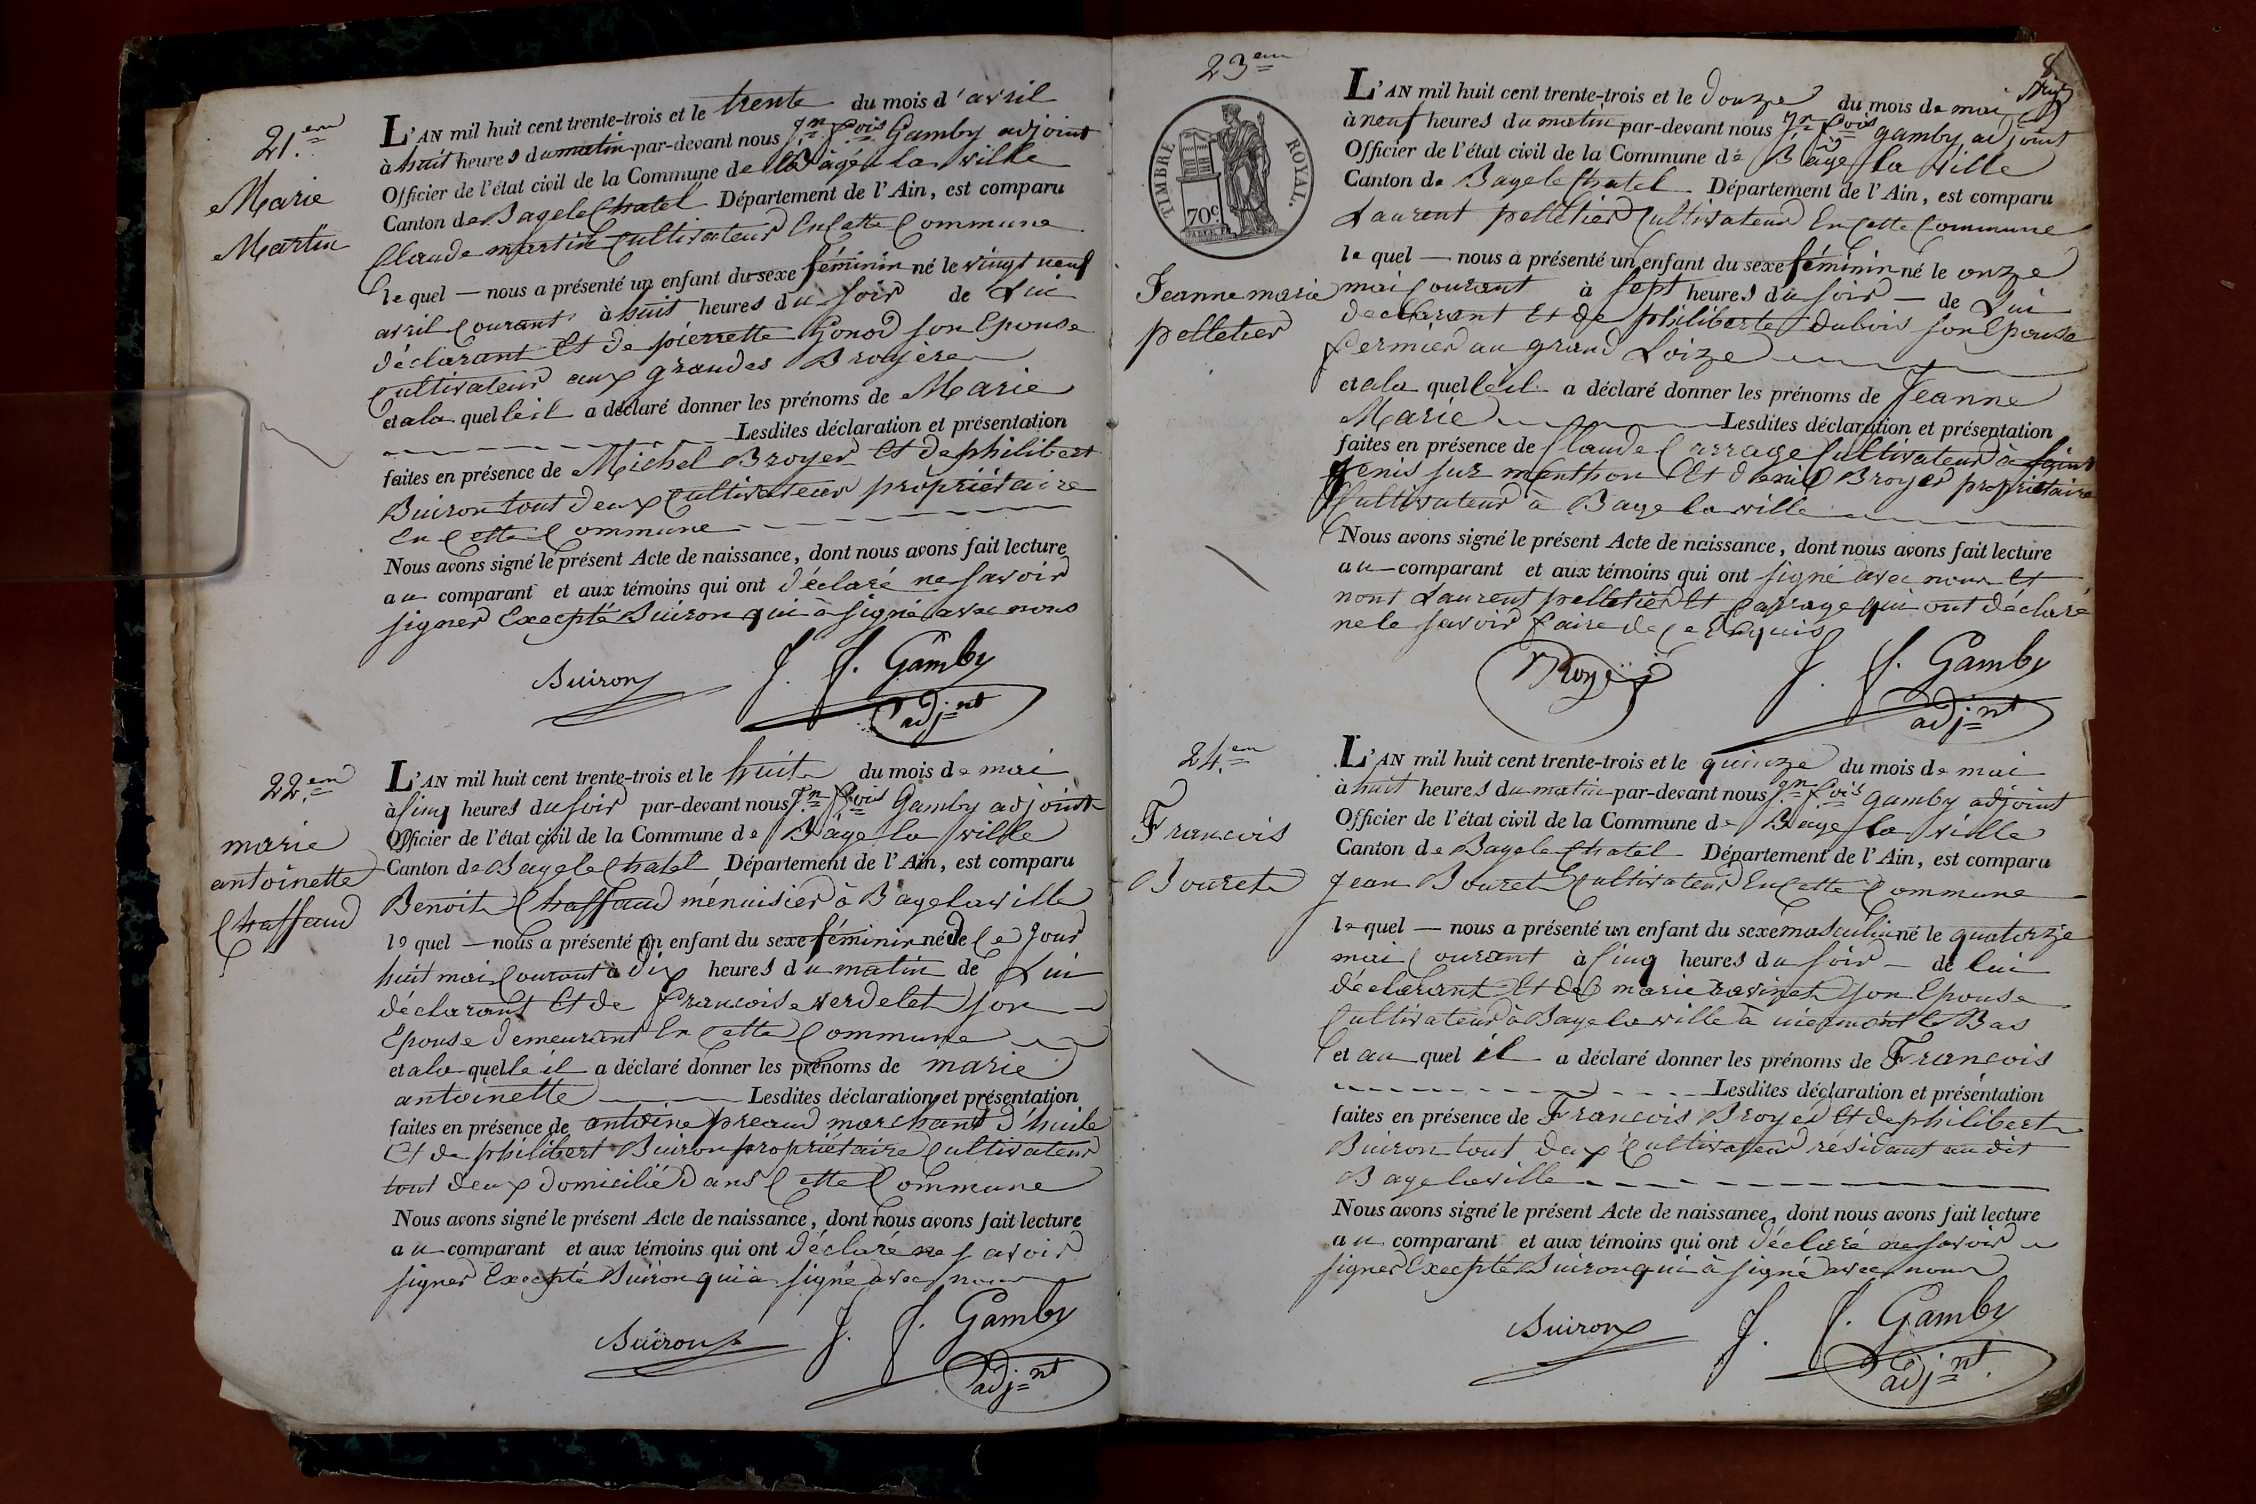 21.em
Marie
Martin
L'AN mil huit cent trente-trois et le trente du mois d'avril
à huit heures du matin par-devant nous Jn fois Gamby adjoint
Officier de l'état civil de la Commune de Bâgé la ville
Canton de Bagele Chatel Département de l'Ain, est comparu
Claude martin Cultivateur En Cette Commune
le quel — nous a présenté un enfant du sexe féminin né le vingt neuf
avril Courant à huit heures du soir de Lui
déclarant Et de pierrette Gonod son Epouse
Cultivateur aux grandes Broyère
et a la quelle il a déclaré donner les prénoms de Marie
Lesdites déclaration et présentation
faites en présence de Michel Broyer Et de philibert
Buiron tout deux Cultivateur propriétaire
En Cette Commune
Nous avons signé le présent Acte de naissance, dont nous avons fait lecture
au comparant et aux témoins qui ont déclaré ne savoir
signer Excepté Buiron qui à signé avec nous
Buiron J. f. Gamby
adjnt
22.em
marie
antoinette
Chaffaud
L'AN mil huit cent trente-trois et le huit du mois de mai
à Cinq heures du soir par-devant nous Jn fois Gamby adjoint
Officier de l'état civil de la Commune de Bâge la ville
Canton de Bagele Chatel Département de l'Ain, est comparu
Benoit Chaffaud ménuisier à Bage la ville
le quel — nous a présenté un enfant du sexe féminin né de Ce Jour
huit mai Courant à dix heures du matin de Lui
déclarant Et de francoise verdelet son
Epouse demeurant En Cette Commune
et a la quelle il a déclaré donner les prénoms de marie
antoinette Lesdites déclaration et présentation
faites en présence de antoine preaud marchand d'huile
Et de philibert Buiron propriétaire Cultivateur
tout deux domicilié dans Cette Commune
Nous avons signé le présent Acte de naissance, dont nous avons fait lecture
au comparant et aux témoins qui ont déclaré ne savoir
signer Excepté Buiron qui à signé avec nous
Buiron J. f. Gamby
adjnt
8
23em
TIMBRE ROYAL.
70c
Jeanne marie
pelletier
L'AN mil huit cent trente-trois et le douze du mois de mai
à neuf heures du matin par-devant nous Jn fois gamby adjoint
Officier de l'état civil de la Commune de Bage la ville
Canton de Bagele Chatel Département de l'Ain, est comparu
Laurent pelletier Cultivateur En Cette Commune
le quel — nous a présenté un enfant du sexe féminin né le onze
mai Courant à sept heures du soir — de Lui
déclarant Et de philiberte Dubois son Epouse
fermier au grand Loize
et a la quelle il a déclaré donner les prénoms de Jeanne
Marie Lesdites déclaration et présentation
faites en présence de Claude Carrage Cultivateur à saint
genis sur menthon Et denis Broyer propriétaire
Cultivateur à Bage la ville
Nous avons signé le présent Acte de naissance, dont nous avons fait lecture
au — comparant et aux témoins qui ont signé avec nous Et
nont Laurent pelletier Et Carrage qui ont déclaré
ne le savoir faire de Ce Enquis
J. f. Gamby
adjnt
24.em
Francois
Bouret
L'AN mil huit cent trente-trois et le quinze du mois de mai
à huit heures du matin par-devant nous Jn fois gamby adjoint
Officier de l'état civil de la Commune de Bage la ville
Canton de Bagele Chatel Département de l'Ain, est comparu
Jean Bouret Cultivateur En Cette Commune
le quel — nous a présenté un enfant du sexe masculin né le quatorze
mai Courant à Cinq heures du soir — de lui
déclarant Et de marie ravinet son Epouse
Cultivateur à Bage la ville à le Bas
et au quel il a déclaré donner les prénoms de Francois
Lesdites déclaration et présentation
faites en présence de Francois Broyer Et de philibert
Buiron tout deux Cultivateur résidant au dit
Bage la ville
Nous avons signé le présent Acte de naissance, dont nous avons fait lecture
au comparant et aux témoins qui ont déclaré ne savoir
signer Excepté Buiron qui à signé avec nous
Buiron J. f. Gamby
adjnt.